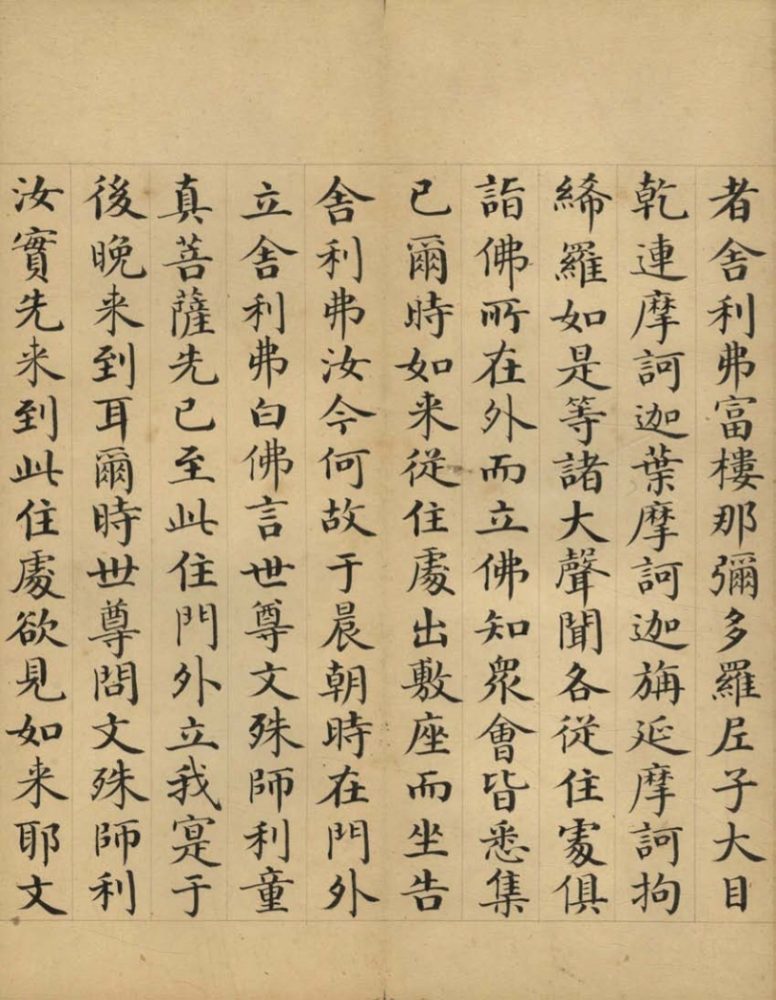 者舍利弗富樓那彌多羅尼子大目
乾連摩訶迦葉摩訶迦旃延摩訶拘
絺羅如是等諸大聲聞各從住處俱
詣佛所在外而立佛知眾會皆悉集
已爾時如来從住處出敷座而坐告
舍利弗汝今何故于晨朝時在門外
立舍利弗白佛言世尊文殊師利童
真菩薩先已至此住門外立我寔于
後晚来到耳爾時世尊問文殊師利
汝實先来到此住處欲見如来耶文